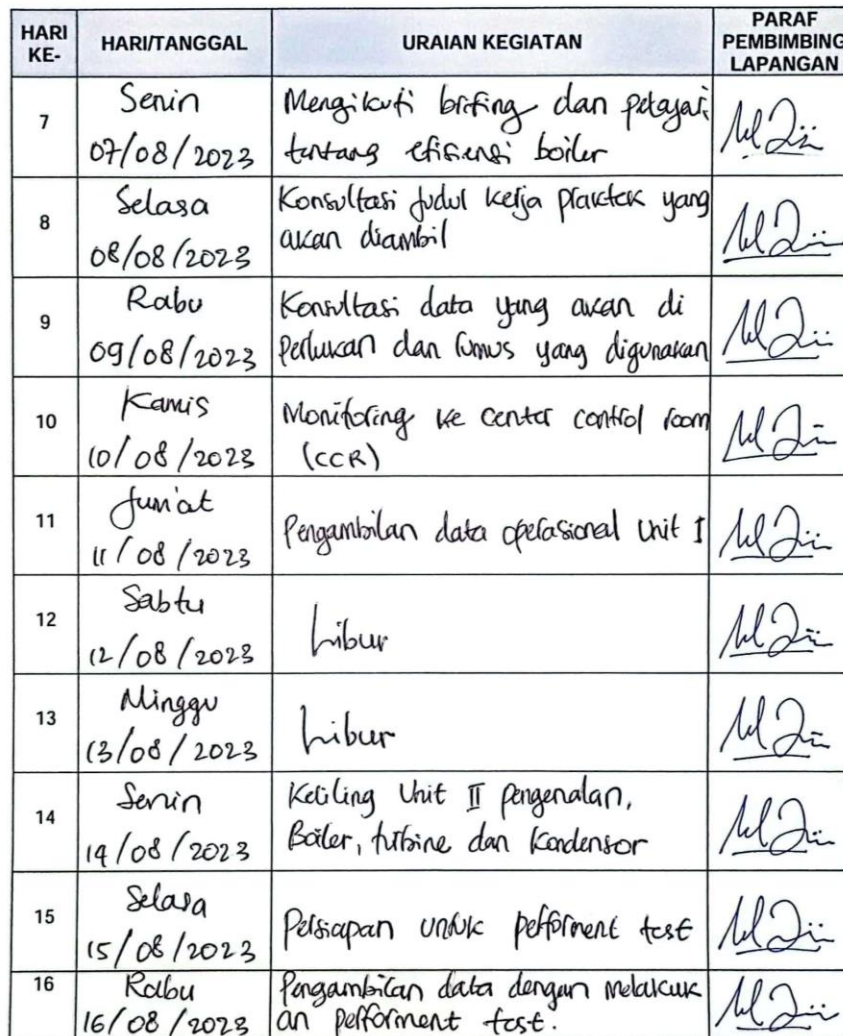 HARI KE-
HARI/TANGGAL
URAIAN KEGIATAN
PARAF PEMBIMBING LAPANGAN
7
Senin
07/08/2023
Mengikuti brifing dan pelajari
tentang efisiensi boiler
8
Selasa
08/08/2023
Konsultasi judul kerja praktek yang
akan diambil
9
Rabu
09/08/2023
Konsultasi data yang akan di
perlukan dan rumus yang digunakan
10
Kamis
10/08/2023
Monitoring ke center control room
(CCR)
11
Jum'at
11/08/2023
Pengambilan data operasional Unit I
12
Sabtu
12/08/2023
Libur
13
Minggu
13/08/2023
Libur
14
Senin
14/08/2023
Keliling Unit II pengenalan,
Boiler, turbine dan Kondensor
15
Selasa
15/08/2023
Persiapan untuk performent test
16
Rabu
16/08/2023
Pengambilan data dengan melakuk
an performent test.